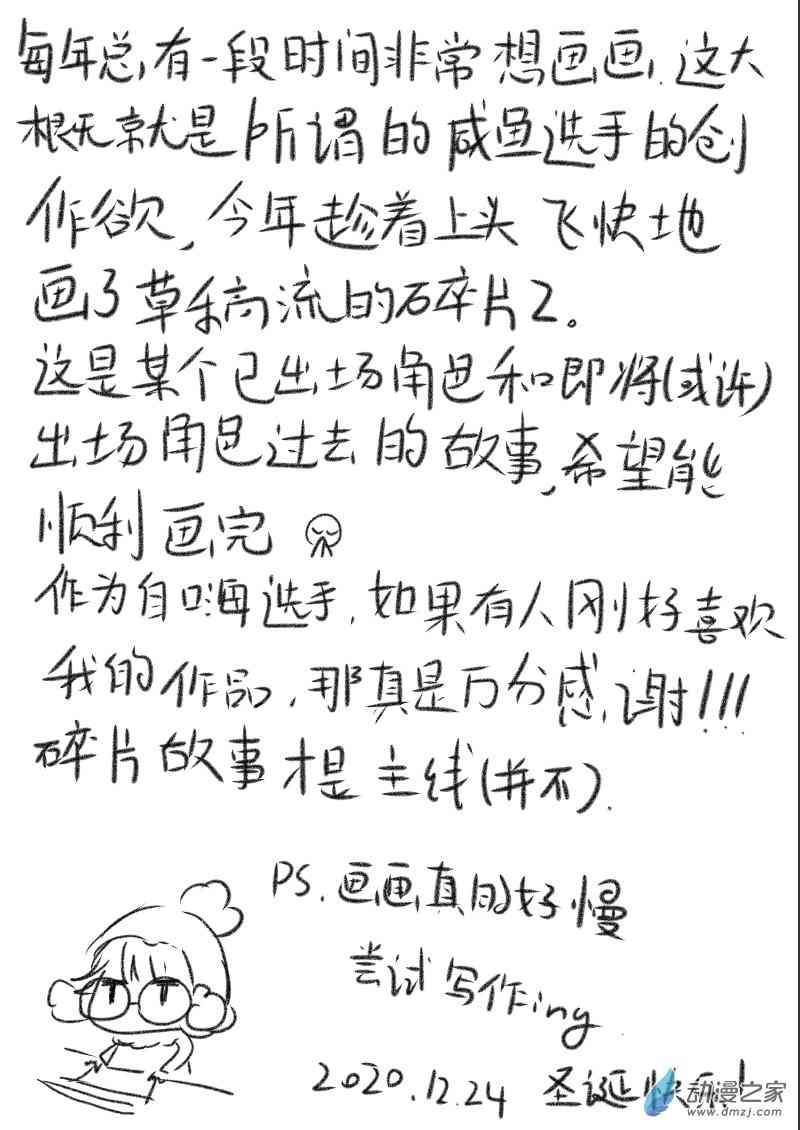 每年总有一段时间非常想画画，这大
概就是所谓的咸鱼选手的创
作欲，今年趁着上头飞快地
画了草稿流的碎片2。
这是某个已出场角色和即将(或许)
出场角色过去的故事，希望能
顺利画完
作为自嗨选手，如果有人刚好喜欢
我的作品，那真是万分感谢!!!
碎片故事才是主线(并不).
PS.画画真的好慢
尝试写作ing
2020.12.24 圣诞快乐!
动漫之家
www.dmzj.com